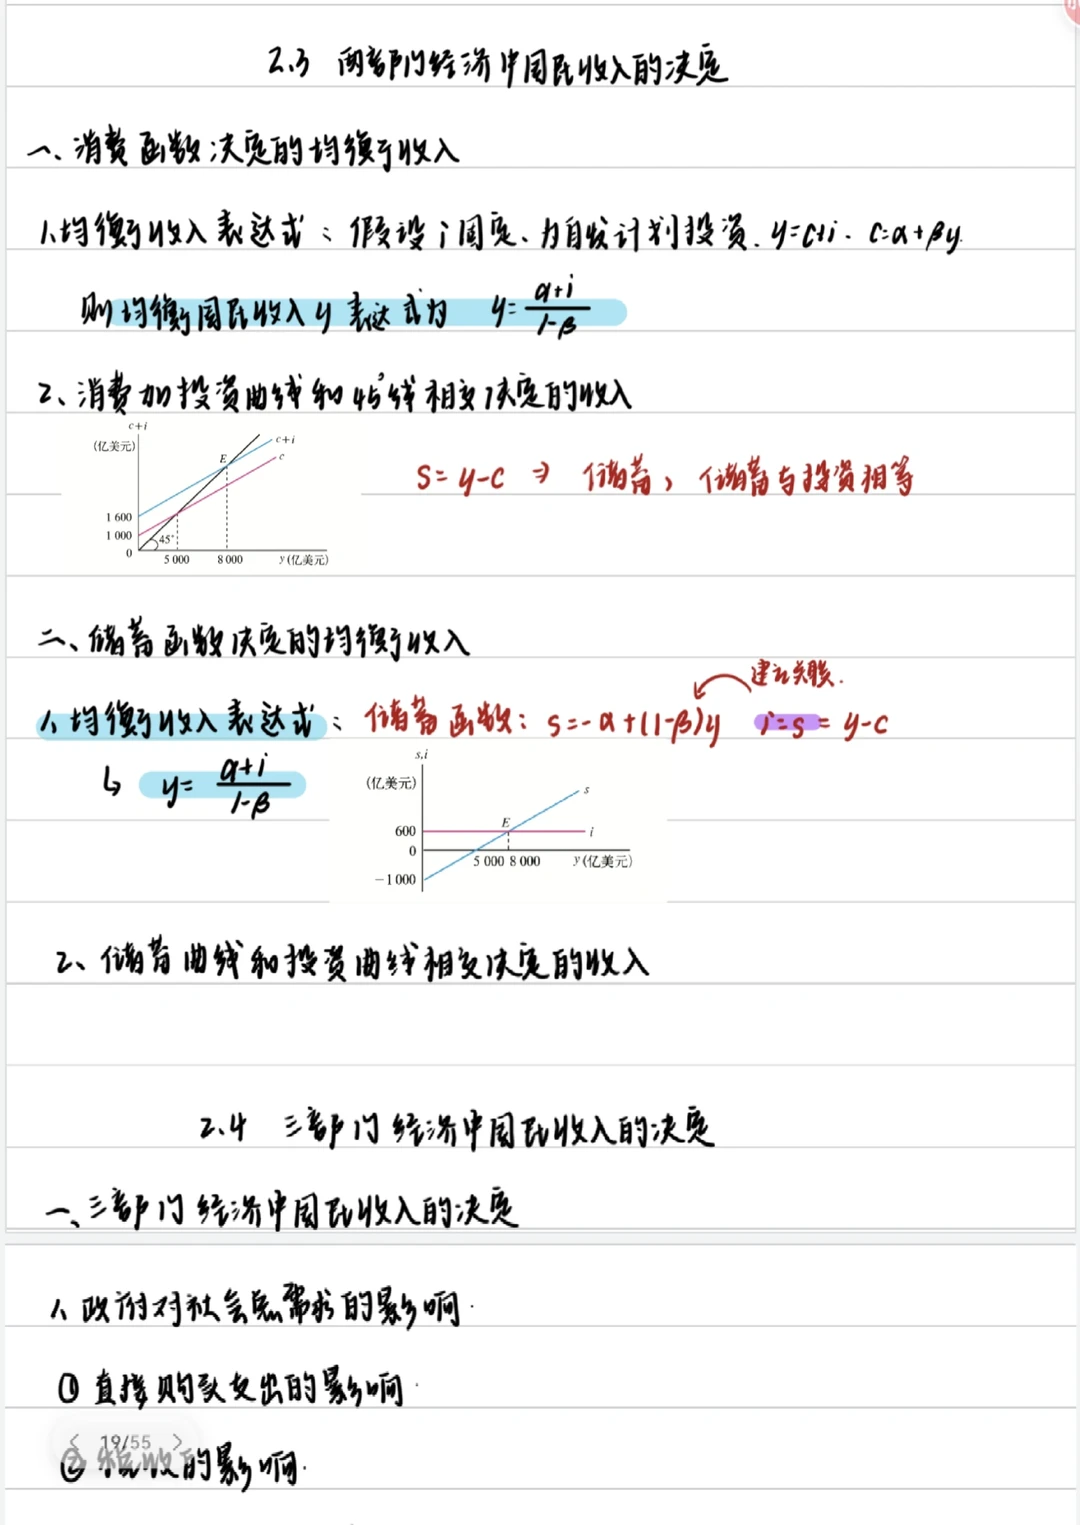 2.3 两部门经济中国民收入的决定
一、消费函数决定的均衡收入
1.均衡收入表达式：假设i固定、为自发计划投资. y=c+i. c=α+βy.
则均衡国民收入y表达式为 y=(α+i)/(1-β)
2、消费加投资曲线和45°线相交决定的收入
c+i
(亿美元)
c+i
E
c
1 600
1 000
45°
0
5 000 8 000 y(亿美元)
S=y-c ⇒ 储蓄，储蓄与投资相等
二、储蓄函数决定的均衡收入
建立关联.
1、均衡收入表达式：储蓄函数：s=-α+(1-β)y i=s=y-c
↳ y=(α+i)/(1-β)
s,i
(亿美元)
s
E
600
i
0
5 000 8 000 y(亿美元)
-1 000
2、储蓄曲线和投资曲线相交决定的收入
2.4 三部门经济中国民收入的决定
一、三部门经济中国民收入的决定
1、政府对社会总需求的影响.
① 直接购买支出的影响.
< 19/55 >
② 税收的影响.